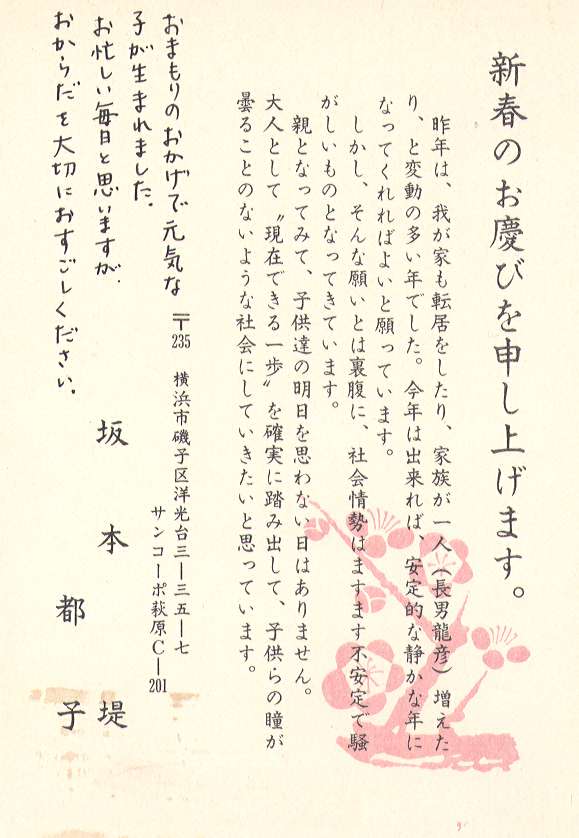 新春のお慶びを申し上げます。
昨年は、我が家も転居をしたり、家族が一人(長男龍彦)増えた
り、と変動の多い年でした。今年は出来れば、安定的な静かな年に
なってくれればよいと願っています。
しかし、そんな願いとは裏腹に、社会情勢はますます不安定で騒
がしいものとなってきています。
親となってみて、子供達の明日を思わない日はありません。
大人として〝現在できる一歩〟を確実に踏み出して、子供らの瞳が
曇ることのないような社会にしていきたいと思っています。
〒235 横浜市磯子区洋光台三―三五―七
サンコーポ萩原C―201
坂本 堤
都子
おまもりのおかげで元気な
子が生まれました.
お忙しい毎日と思いますが.
おからだを大切におすごしください.